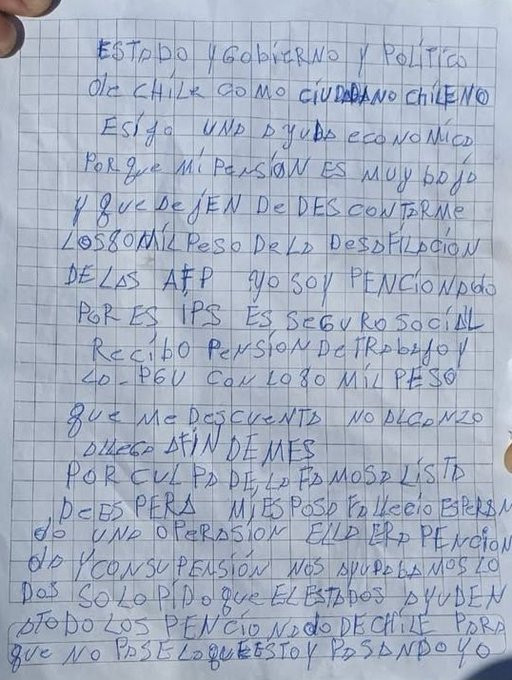 ESTADO Y GObiERNO Y POLíTICO
de CHíLE COMO CIUDADANO CHíLENO
ESíJO UNA AYUDA ECONOMíCA
PORque Mí PENSíON ES MUY bAJO
Y que DEJEN DE DESCONTARME
LOS80MíL PESO DE LA DESAFíLACíON
DE LAS AFP YO SOY PENCíONAdo
POR ES IPS ES SEGURO SOCíAL
RECíbO PENSíON DE TRAbAJO Y
LA-PGU CON LO 80 MíL PESO
que ME DESCUENTA NO ALCANZO
ALLEGA AFIN DE MES
POR CULPA DE, LA FAMOSA LíSTA
DEESPERA MI ESPOSA FALLECíO ESPERAN
do UNA OPERASíON ELLA ERA PENCION
da Y CONSUPENSIÓN NOS AYUDAbAMOS LO
DOS SOLO PíDO que EL ESTADOS AYUDEN
ATODO LOS PENCíONAdo DE CHíLE PARA
que NO PASE LO que ESTOY PASANDO YO